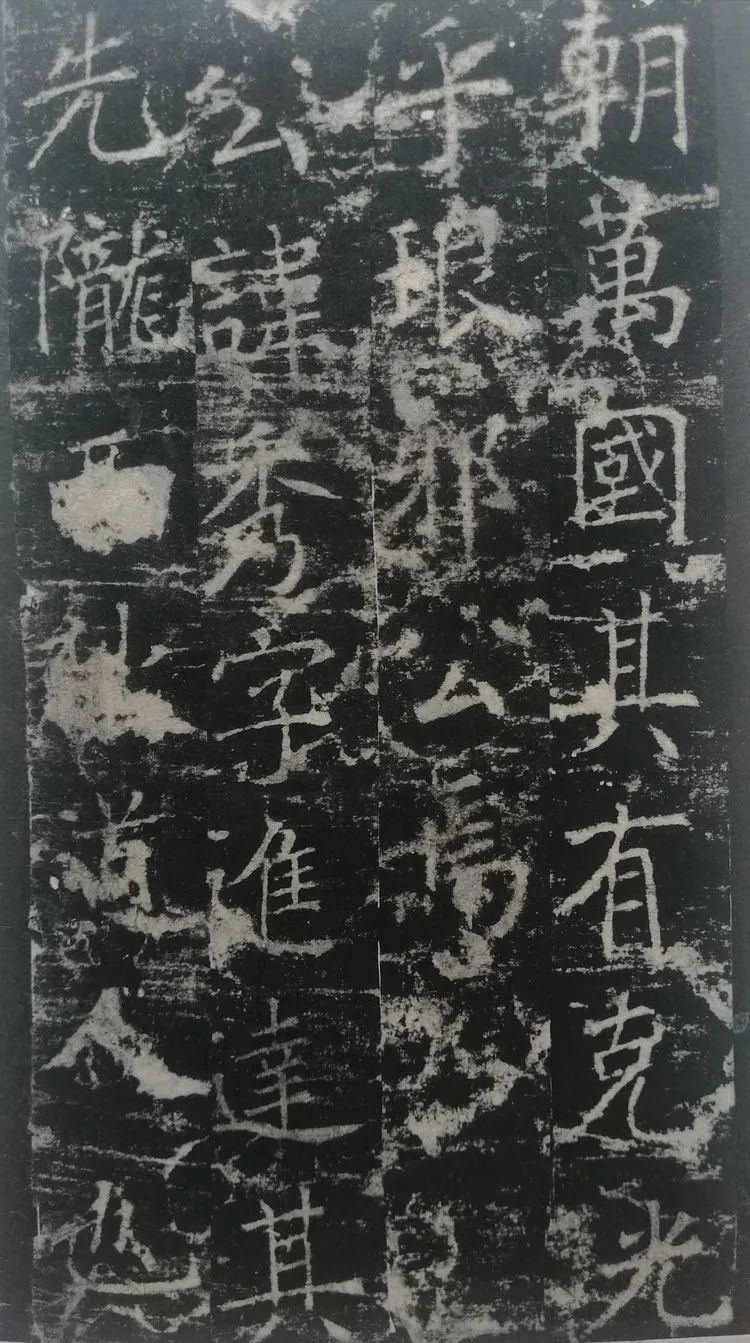 朝萬國其有克光
乎琅邪公焉公
公諱秀字進達其
先隴西狄道人邈